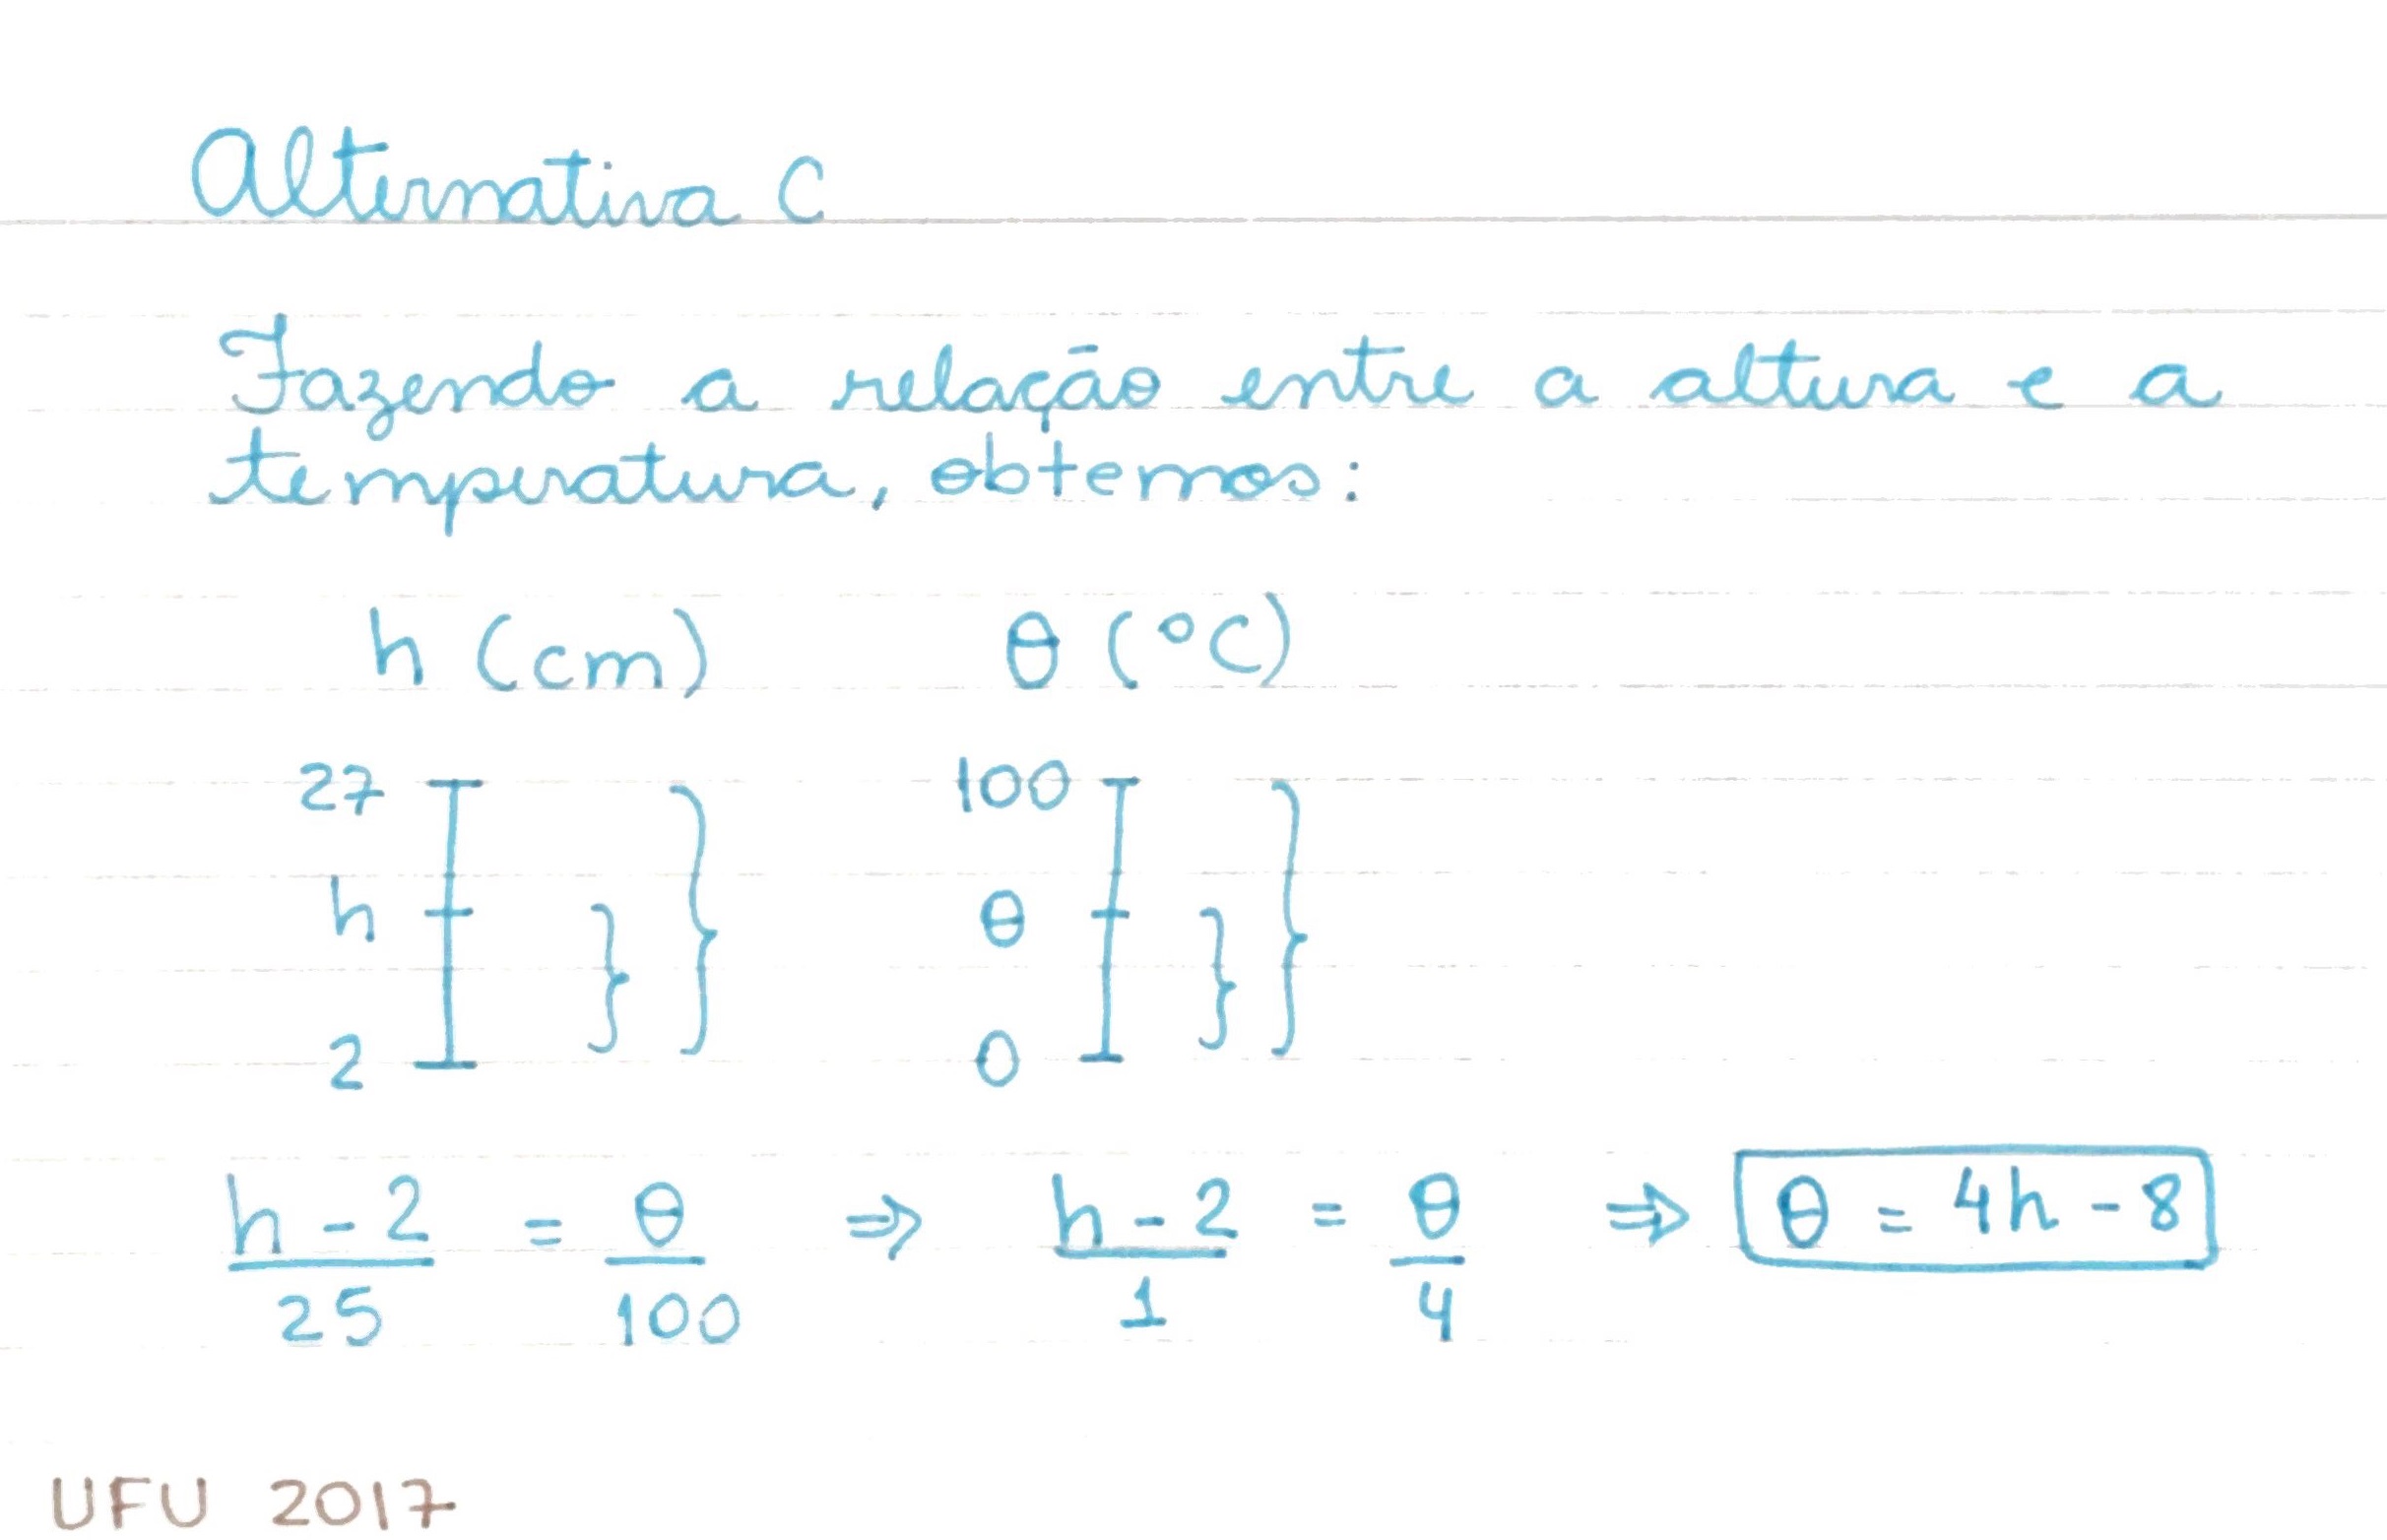 Alternativa C
Fazendo a relação entre a altura e a
temperatura, obtemos:
h (cm) θ (°C)
27 100
h θ
2 0
h - 2 / 25 = θ / 100 ⇒ h - 2 / 1 = θ / 4 ⇒ θ = 4h - 8
UFU 2017